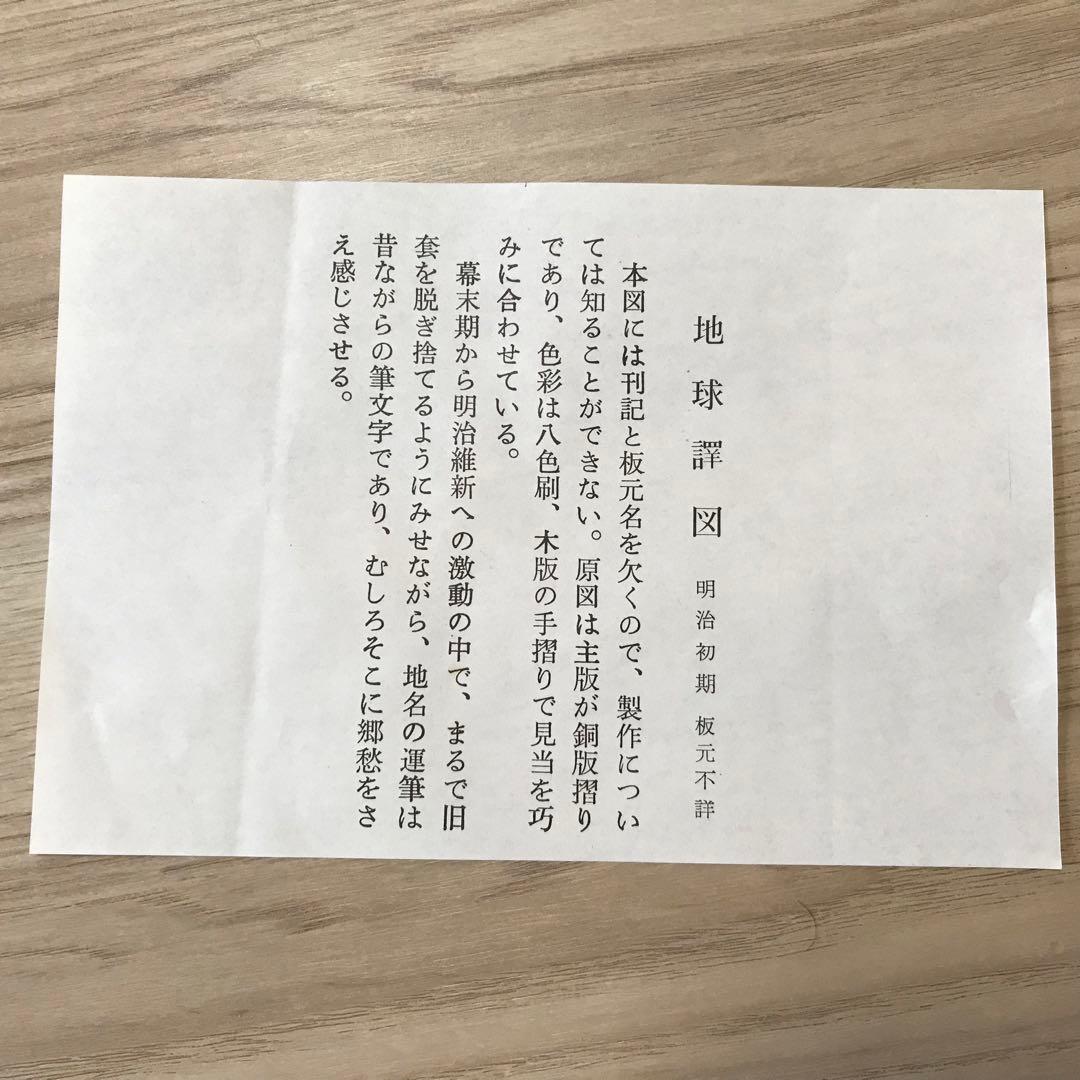 地球譯図 明治初期 板元不詳
本図には刊記と板元名を欠くので、製作につい
ては知ることができない。原図は主版が銅版摺り
であり、色彩は八色刷、木版の手摺りで見当を巧
みに合わせている。
幕末期から明治維新への激動の中で、まるで旧
套を脱ぎ捨てるようにみせながら、地名の運筆は
昔ながらの筆文字であり、むしろそこに郷愁をさ
え感じさせる。